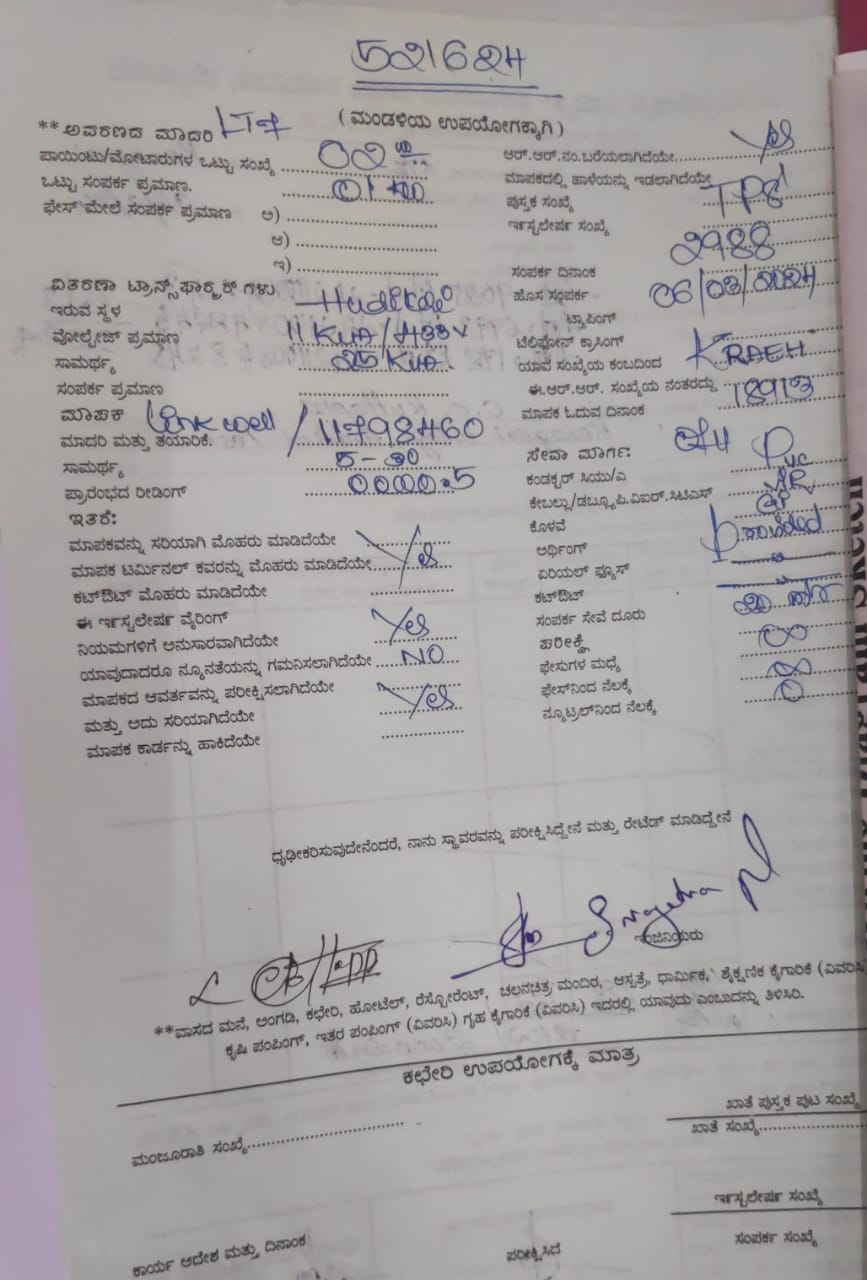 521624
(ಮಂಡಳಿಯ ಉಪಯೋಗಕ್ಕಾಗಿ)
**ಅವರಣದ ಮಾದರಿ
ಪಾಯಿಂಟು/ಮೋಟಾರುಗಳ ಒಟ್ಟು ಸಂಖ್ಯೆ 02
ಒಟ್ಟು ಸಂಪರ್ಕ ಪ್ರಮಾಣ.
ಫೇಸ್ ಮೇಲೆ ಸಂಪರ್ಕ ಪ್ರಮಾಣ ಅ)
ಆ)
ಇ)
ವಿತರಣಾ ಟ್ರಾನ್ಸ್‌ಫಾರ್ಮರ್ ಗಳು
ಇರುವ ಸ್ಥಳ
ವೋಲ್ಟೇಜ್ ಪ್ರಮಾಣ 11 KVA/433V
ಸಾಮರ್ಥ್ಯ 25 KVA.
ಸಂಪರ್ಕ ಪ್ರಮಾಣ
ಮಾಪಕ Linkwell / 11798460
ಮಾದರಿ ಮತ್ತು ತಯಾರಿಕೆ.
ಸಾಮರ್ಥ್ಯ 5-30
ಪ್ರಾರಂಭದ ರೀಡಿಂಗ್ 0000.5
ಇತರೆ:
ಮಾಪಕವನ್ನು ಸರಿಯಾಗಿ ಮೊಹರು ಮಾಡಿದೆಯೇ
ಮಾಪಕ ಟರ್ಮಿನಲ್ ಕವರನ್ನು ಮೊಹರು ಮಾಡಿದೆಯೇ Yes
ಕಟ್‌ಔಟ್ ಮೊಹರು ಮಾಡಿದೆಯೇ
ಈ ಇನ್ಸ್ಟಲೇಷನ್ ವೈರಿಂಗ್
ನಿಯಮಗಳಿಗೆ ಅನುಸಾರವಾಗಿದೆಯೇ Yes
ಯಾವುದಾದರೂ ನ್ಯೂನತೆಯನ್ನು ಗಮನಿಸಲಾಗಿದೆಯೇ NO
ಮಾಪಕದ ಆವರ್ತವನ್ನು ಪರೀಕ್ಷಿಸಲಾಗಿದೆಯೇ
ಮತ್ತು ಅದು ಸರಿಯಾಗಿದೆಯೇ Yes
ಮಾಪಕ ಕಾರ್ಡನ್ನು ಹಾಕಿದೆಯೇ
ಆರ್.ಆರ್.ನಂ.ಬರೆಯಲಾಗಿದೆಯೇ Yes
ಮಾಪಕದಲ್ಲಿ ಹಾಳೆಯನ್ನು ಇಡಲಾಗಿದೆಯೇ
ಪುಸ್ತಕ ಸಂಖ್ಯೆ
ಇನ್ಸ್ಟಲೇಷನ್ ಸಂಖ್ಯೆ 2988
ಸಂಪರ್ಕ ದಿನಾಂಕ
ಹೊಸ ಸಂಪರ್ಕ 06/03/2024
ಟ್ಯಾಪಿಂಗ್
ಟೆಲಿಫೋನ್ ಕ್ರಾಸಿಂಗ್
ಯಾವ ಸಂಖ್ಯೆಯ ಕಂಬದಿಂದ KRAEH
ಈ.ಆರ್.ಆರ್. ಸಂಖ್ಯೆಯ ನಂತರದ್ದು 18913
ಮಾಪಕ ಓದುವ ದಿನಾಂಕ
ಸೇವಾ ಮಾರ್ಗ:
ಕಂಡಕ್ಟರ್ ಸಿಯು/ಎ
ಕೇಬಲ್ಲು/ಡಬ್ಲ್ಯೂಪಿ.ವಿಐರ್.ಸಿಟಿಎಸ್
ಕೊಳವೆ
ಅರ್ಥಿಂಗ್ provided
ಏರಿಯಲ್ ಫ್ಯೂಸ್
ಕಟ್‌ಔಟ್
ಸಂಪರ್ಕ ಸೇವೆ ದೂರು
ಪರೀಕ್ಷೆ
ಫೇಸುಗಳ ಮಧ್ಯೆ ∞
ಫೇಸ್‌ನಿಂದ ನೆಲಕ್ಕೆ ∞
ನ್ಯೂಟ್ರಲ್‌ನಿಂದ ನೆಲಕ್ಕೆ 0
ಧೃಢೀಕರಿಸುವುದೇನೆಂದರೆ, ನಾನು ಸ್ಥಾವರವನ್ನು ಪರೀಕ್ಷಿಸಿದ್ದೇನೆ ಮತ್ತು ರೇಟೆಡ್ ಮಾಡಿದ್ದೇನೆ
ಇಂಜಿನಿಯರು
**ವಾಸದ ಮನೆ, ಅಂಗಡಿ, ಕಛೇರಿ, ಹೋಟೆಲ್, ರೆಸ್ಟೋರೆಂಟ್, ಚಲನಚಿತ್ರ ಮಂದಿರ, ಆಸ್ಪತ್ರೆ, ಧಾರ್ಮಿಕ, ಶೈಕ್ಷಣಿಕ ಕೈಗಾರಿಕೆ (ವಿವರಿಸಿ)
ಕೃಷಿ ಪಂಪಿಂಗ್, ಇತರ ಪಂಪಿಂಗ್ (ವಿವರಿಸಿ) ಗೃಹ ಕೈಗಾರಿಕೆ (ವಿವರಿಸಿ) ಇದರಲ್ಲಿ ಯಾವುದು ಎಂಬುದನ್ನು ತಿಳಿಸಿರಿ.
ಕಛೇರಿ ಉಪಯೋಗಕ್ಕೆ ಮಾತ್ರ
ಖಾತೆ ಪುಸ್ತಕ ಪುಟ ಸಂಖ್ಯೆ
ಮಂಜೂರಾತಿ ಸಂಖ್ಯೆ
ಖಾತೆ ಸಂಖ್ಯೆ
ಇನ್ಸ್ಟಲೇಷನ್ ಸಂಖ್ಯೆ
ಕಾರ್ಯ ಆದೇಶ ಮತ್ತು ದಿನಾಂಕ
ಪರೀಕ್ಷಿಸಿದೆ
ಸಂಪರ್ಕ ಸಂಖ್ಯೆ